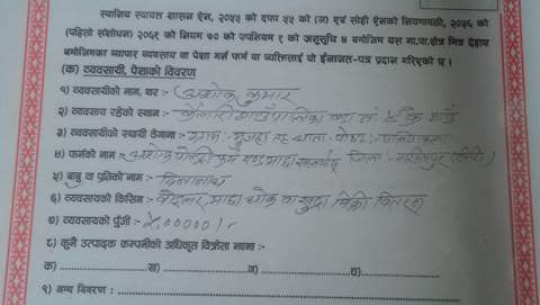 स्थानिय स्वायत्त शासन ऐन, २०५५ को दफा ५५ को (ज) एवं सोही ऐनको नियमावली, २०५६ को
(पहिलो संशोधन) २०६१ को नियम ७० को उपनियम १ को अनुसूचि ४ बमोजिम यस गा.पा.क्षेत्र भित्र देहाय
बमोजिमका व्यापार व्यवसाय वा पेशा गर्न फर्म वा व्यक्तिलाई यो ईजाजत-पत्र प्रदान गरिएको छ ।
(क) व्यवसायी, पेशाको विवरण
१) व्यवसायीको नाम, थर :- अशोक कुमार
२) व्यवसाय रहेको स्थान :- गाउँपालिका वडा नं
३) व्यवसायीको स्थायी ठेगाना :- ग्राम
४) फर्मको नाम :- अशोक पोल्ट्री फर्म एण्ड भाडा जिला
५) बाबु वा पतिको नाम :-
६) व्यवसायको किसिम :- भाडा थोक वा खुद्रा बिक्री वितरण
७) व्यवसायको पुँजी :- ५,००००० ।-
८) कुनै उत्पादक कम्पनीको अधिकृत विक्रेता भएमा :-
क) ख) ग) घ)
९) अन्य विवरण :